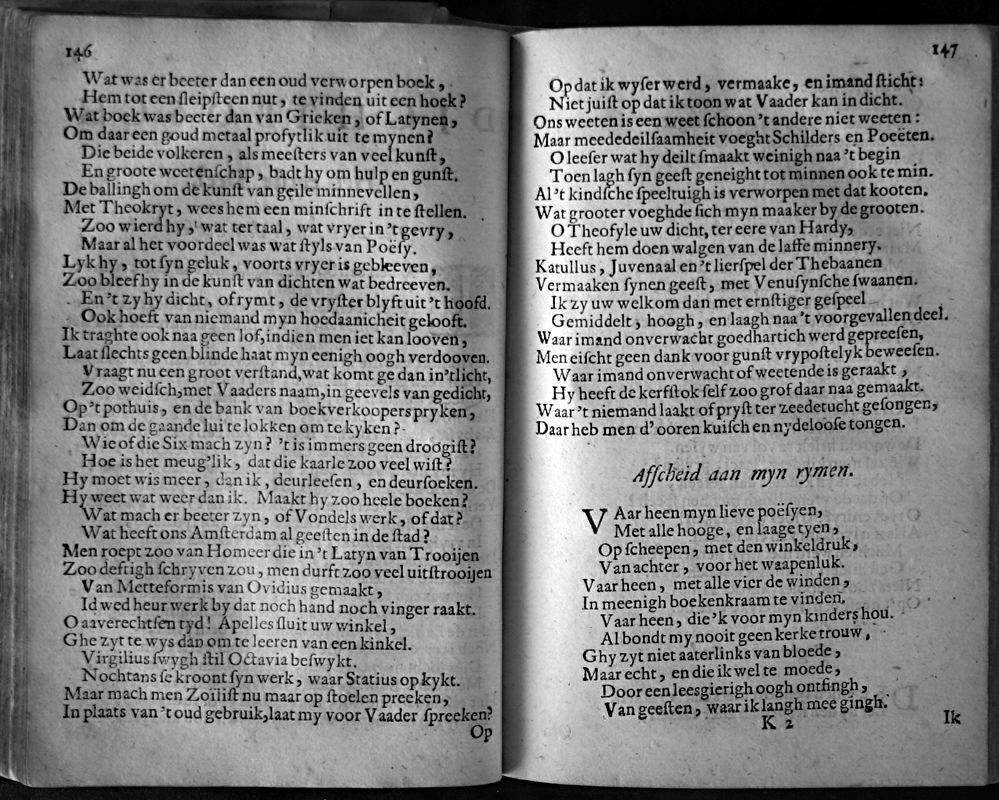 146
Wat was er beeter dan een oud verworpen boek,
Hem tot een sleipsteen nut, te vinden uit een hoek?
Wat boek was beeter dan van Grieken, of Latynen,
Om daar een goud metaal profytlik uit te mynen?
Die beide volkeren, als meesters van veel kunst,
En groote weetenschap, badt hy om hulp en gunst.
De ballingh om de kunst van geile minnevellen,
Met Theokryt, wees hem een minschrift in te stellen.
Zoo wierd hy, wat ter taal, wat vryer in 't gevry,
Maar al het voordeel was wat styls van Poësy.
Lyk hy, tot syn geluk, voorts vryer is gebleeven,
Zoo bleef hy in de kunst van dichten wat bedreeven.
En 't zy hy dicht, of rymt, de vryster blyft uit 't hoofd.
Ook hoeft van niemand myn hoedaanicheit gelooft.
Ik traghte ook naa geen lof, indien men iet kan looven,
Laat slechts geen blinde haat myn eenigh oogh verdooven.
Vraagt nu een groot verstand, wat komt ge dan in 't licht,
Zoo weidsch, met Vaaders naam, in geevels van gedicht,
Op 't pothuis, en de bank van boekverkoopers pryken,
Dan om de gaande lui te lokken om te kyken?
Wie of die Six mach zyn? 't is immers geen droogist?
Hoe is het meug'lik, dat die kaarle zoo veel wist?
Hy moet wis meer, dan ik, deurleesen, en deursoeken.
Hy weet wat weer dan ik. Maakt hy zoo heele boeken?
Wat mach er beeter zyn, of Vondels werk, of dat?
Wat heeft ons Amsterdam al geesten in de stad?
Men roept zoo van Homeer die in 't Latyn van Trooijen
Zoo deftigh schryven zou, men durft zoo veel uitstrooijen
Van Metteformis van Ovidius gemaakt,
Id wed heur werk by dat noch hand noch vinger raakt.
O aaverechtsen tyd! Apelles sluit uw winkel,
Ghe zyt te wys dan om te leeren van een kinkel.
Virgilius swygh stil Octavia beswykt.
Nochtans se kroont syn werk, waar Statius op kykt.
Maar mach men Zoïlist nu maar op stoelen preeken,
In plaats van 't oud gebruik, laat my voor Vaader spreeken?
Op
147
Op dat ik wyser werd, vermaake, en imand sticht:
Niet juist op dat ik toon wat Vaader kan in dicht.
Ons weeten is een weet schoon 't andere niet weeten:
Maar meededeilsaamheit voeght Schilders en Poeëten.
O leeser wat hy deilt smaakt weinigh naa 't begin
Toen lagh syn geest geneight tot minnen ook te min.
Al 't kindsche speeltuigh is verworpen met dat kooten.
Wat grooter voeghde sich myn maaker by de grooten.
O Theofyle uw dicht, ter eere van Hardy,
Heeft hem doen walgen van de laffe minnery.
Katullus, Juvenaal en 't lierspel der Thebaanen
Vermaaken synen geest, met Venusynsche swaanen.
Ik zy uw welkom dan met ernstiger gespeel
Gemiddelt, hoogh, en laagh naa 't voorgevallen deel.
Waar imand onverwacht goedhartich werd gepreesen,
Men eischt geen dank voor gunst vrypostelyk beweesen.
Waar imand onverwacht of weetende is geraakt,
Hy heeft de kerfstok self zoo grof daar naa gemaakt.
Waar 't niemand laakt of pryst ter zeedetucht gesongen,
Daar heb men d' ooren kuisch en nydeloose tongen.
Afscheid aan myn rymen.
VAar heen myn lieve poësyen,
Met alle hooge, en laage tyen,
Op scheepen, met den winkeldruk,
Van achter, voor het waapenluk.
Vaar heen, met alle vier de winden,
In meenigh boekenkraam te vinden.
Vaar heen, die 'k voor myn kinders hou.
Al bondt my nooit geen kerke trouw,
Ghy zyt niet aaterlinks van bloede,
Maar echt, en die ik wel te moede,
Door een leesgierigh oogh ontfingh,
Van geesten, waar ik langh mee gingh.
K 2
Ik